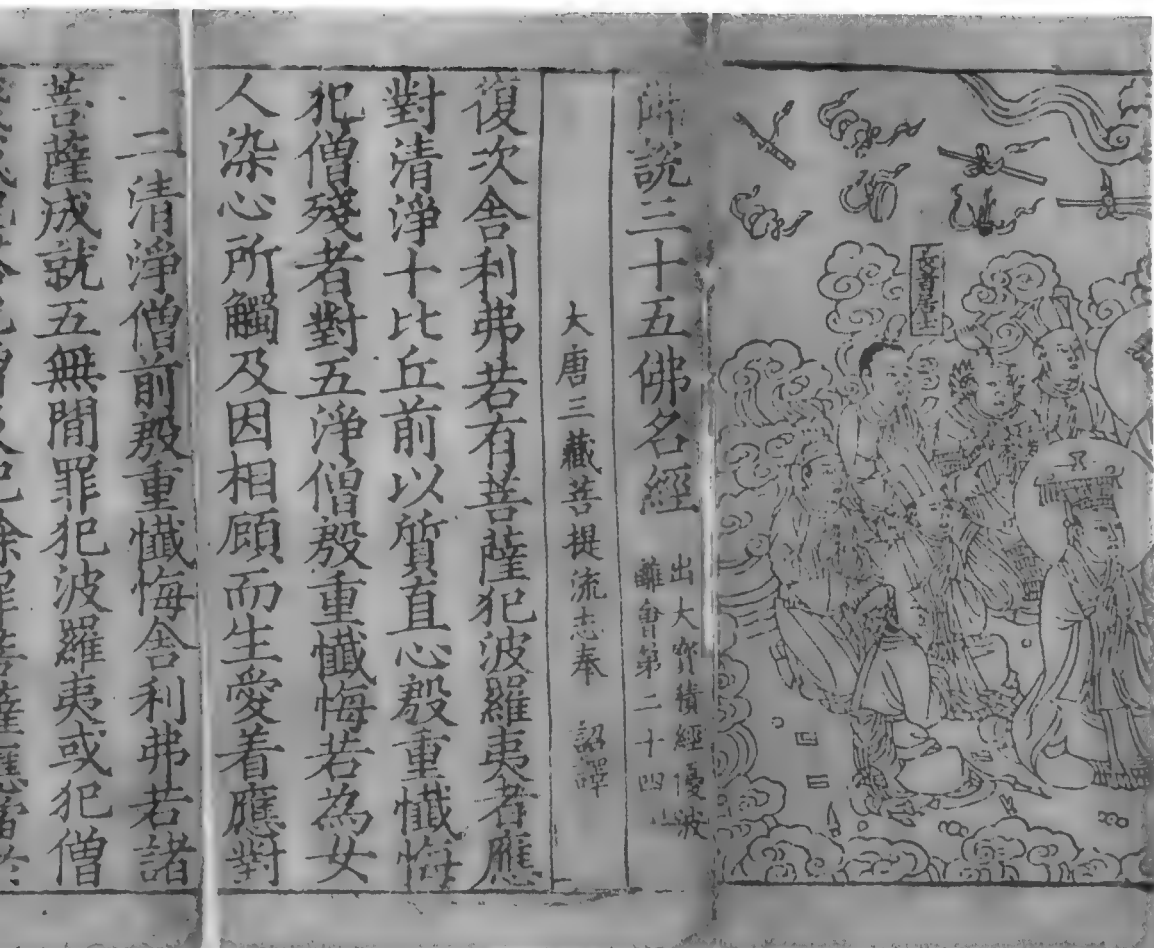 佛說三十五佛名經
出大寳積經優波
離會第二十四
大唐三藏菩提流志奉 詔譯
復次舍利弗若有菩薩犯波羅夷者應
對清淨十比丘前以質直心殷重懺悔
犯僧殘者對五淨僧殷重懺悔若為女
人染心所觸及因相顧而生愛着應對
二清淨僧前殷重懺悔舍利弗若諸
菩薩成就五無間罪犯波羅夷或犯僧